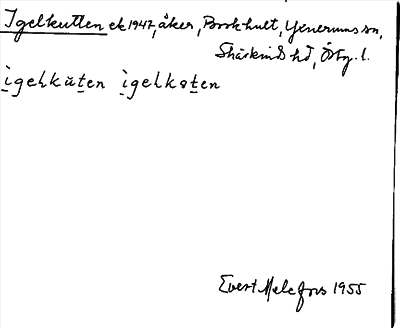 Igelkutten ek 1947, åker, Bookhult, Yxnerums sn,
Skärkinds hd, Östg. l.
ìgeḷkùt̲en ìgelkot̲en
Evert Melefors 1955